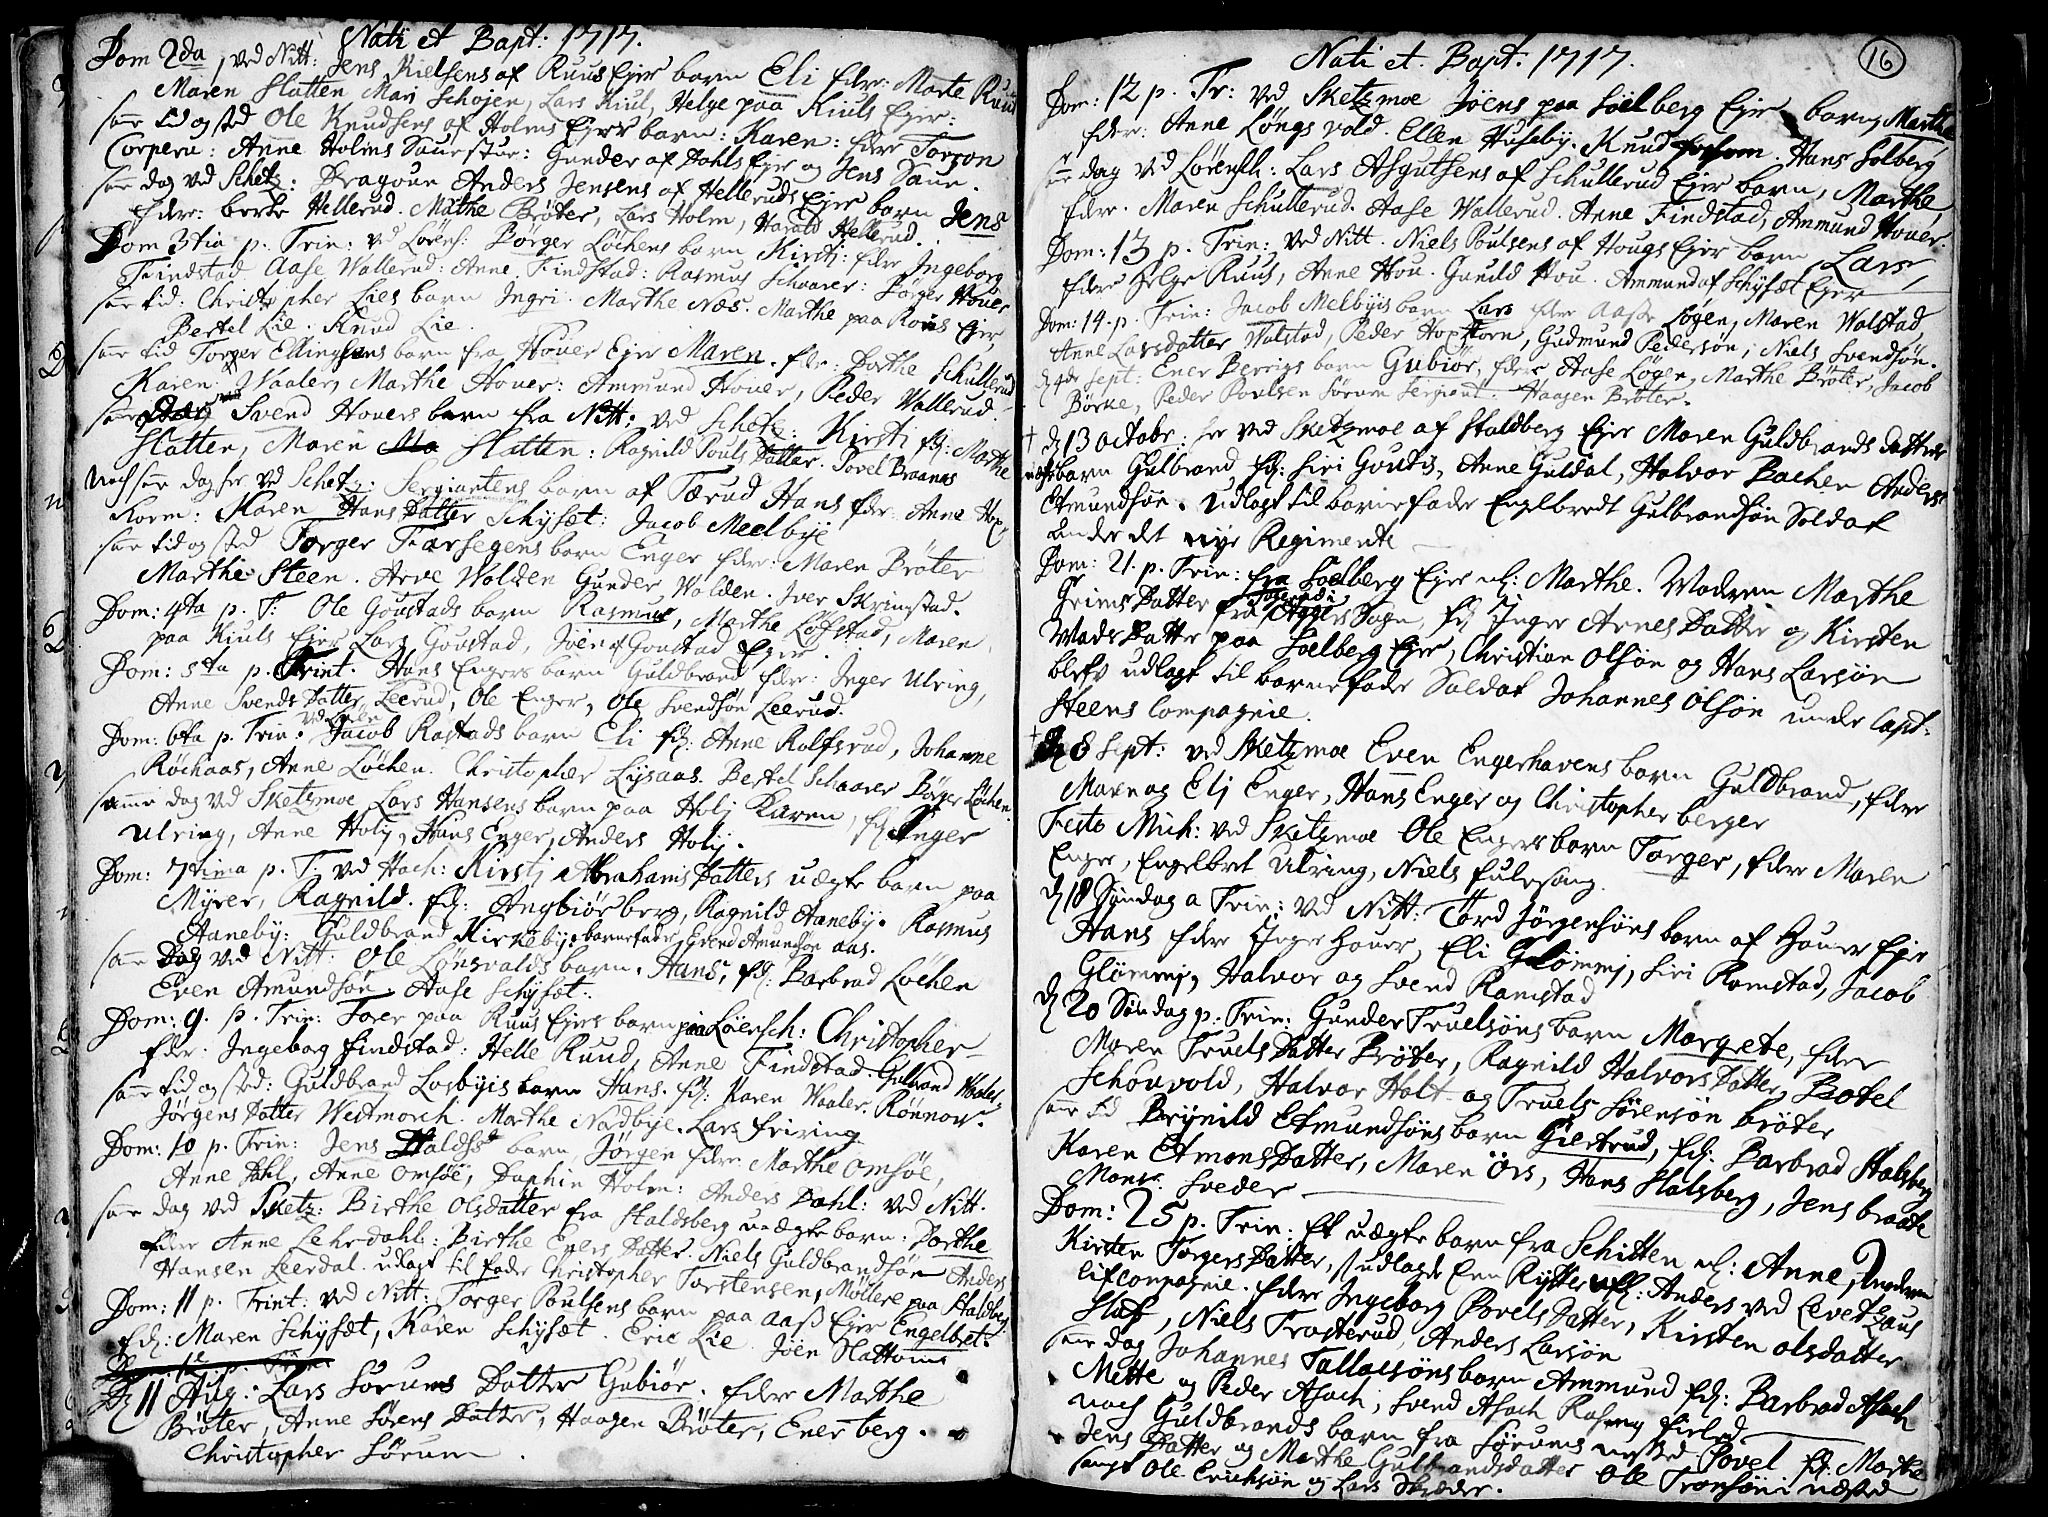 Nati et Bapt: 1717.
Dom 2da, ved Nitt: Jens Nielsens af Ruus Ejer barn Eli fdr: Marte Ruud
Maren Slatten Mari Schojen, Lars Kiul, Helge paa Kiuls Ejer:
samme tid og sted Ole Knudsens af Holms Ejer barn: Karen: fdr Torgon
Corperu: Anne Holms Sauestue: Gunder af Dahls Ejer og Jens Saue.
samme dag ved Schetz: Dragoun Anders Jensens af Helleruds Ejer barn Jens
fdr: berte Hellerud. Mathe Bröter, Lars Holm, Harald Hellerud.
Dom 3tia p. Trin: vd Lörens: Börger Löchens barn Kirsti: fdr Ingeborg
Findstad Aase Wallerud: Anne Findstad: Rasmus Schaarer: Börger Houer
samme tid: Christopher Lies barn Ingri. Marthe Næs. Marthe paa Rouds Ejer
Bertel Lie. Knud Lie.
samme tid Torger Ellingsens barn fra Houer Ejer Maren. fdr: Dorthe Schullerud
Karen Waaler, Marthe Houer: Ammund Houer, Peder Wallerud.
samme dag Svend Houers barn fra Nitt: ved Schetz: Kirsti fd: Marthe
Slatten, Maren Slatten: Ragnild Pouls Datter. Povel Braanas
noch samme dag her ved Schetz: Sergiantens barn af Tærud Hans fdr Anne Hox
Korm: Karen Hans Datter Schyset: Jacob Meelbye
samme tid og sted Torger Farsegens barn Enger fdr: Maren Bröter
Marthe Steen. Arve Wolden Gunder Wolden. Iver Skrimstad.
Dom: 4ta p. T: Ole Goustads barn Rasmus, Marthe Löfstad, Maren
paa Kiuls Ejer Lars Goustad, Jöen af Goustad Ejer.
Dom: 5ta p. Trint. Hans Engers barn Guldbrand fdr: Inger Ulring,
Anne Svends Datter Leerud, Ole Enger, Ole Svendsön Leerud.
Dom: 6ta p. Trin: Jacob Rastads barn Eli fd: Anne Rolfsrud, Johanne
Röchaas, Anne Löchen. Christopher Lysaas. Bertel Schaarer Börger Löchen.
samme dag ved Sketzmoe Lars Hansens barn paa Holj Karen, fd Inger
Ulring, Anne Holj, Hans Enger, Anders Holj.
Dom: 7tima p. T. ved Hach: Kirsti Abrahams Datters uægte barn paa
Myrer, Ragnild. fd: Angbiör berg, Ragnild Aaneby. Rasmus
Aaneby: Guldbrand Kirkeby: barnefader Evend Amundsön aas.
samme Dag ved Nitt: Ole Lönsvalds barn. Hans, fd: Barbrad Löchen
Even Amundsön. Aase Schyset:
Dom: 9. p. Trin: Torer paa Ruus Ejers barn paa Löersch: Christopher
fdr: Ingebog findstad: Helle Ruud, Anne Findstad. Gulbrand Waaler
samme tid og sted: Guldbrand Losbyis barn Hans. fd: Karen Waaler. Rönnov
Jörgens Datter Westmorch. Marthe Nordbye. Lars friring
Dom: 10 p. Trin: Jens barn Jörgen fdr: Marthe Omsöe,
Anne Dahl, Anne Omsöe, Daphin Holm: Anders Dahl: ved Nitt.
samme dag ved Sketz: Birthe Olsdatter fra Staldsberg uægte barn: Dorthe
fdr Anne Lehrdahl: Birthe Eners Datter. Niels Guldbrandsön Anders
Hansen Leerdal. udlagt til fader Christopher Torstensen, Möllere paa Staldberg
Dom: 11 p. Trint: ved Nitt: Torger Poulsens barn paa Aass Ejer Engelbret.
fd: Maren Schyset, Karen Schyset. Eric Lie Jöen Slattum
Dom. 12 p. Trin
D 11 Aug: Lars Sörums Datter Gubiör. fdr Marthe
Bröter, Anne Sörens Datter, Haagen Bröter, Ener berg.
Christopher Sörum.
16
Nati et. Bapt: 1717.
Dom: 12 p. Tr: ved Sketzmoe Jöens paa Söelberg Ejer barn Marthe
fdr: Anne Löngsvold. Ellen Huseby. Knud Forsom. Hans Solberg
samme dag ved Lörensk: Lars Asgutsens af Schullerud Ejer barn, Marthe,
fdr. Maren Schullerud. Aase Wallerud. Anne Findstad, Ammund Houer.
Dom: 13 p. Trin: ved Nitt. Niels Poulsens af Hougs Ejer barn Lars,
fdr Helge Ruus, Anne Hou. Gunild Hou. Ammund af Schyset Ejer
Dom: 14. p. Trin: Jacob Melbyis barn Lars fdr Aase Lögen, Maren Wolstad
Anne Larsdatter Wolstad, Peder Hoxkorn, Gudmund Pedersön, Niels Svendsön.
d 4de Sept: Ener Bergs barn Gubiör, fdr Aase Lögen, Marthe Bröter, Jacob
Börke, Peder Poulsen Sörum Sergiant. Haagen Bröter.
† d 13 Octobr: her ved Sketzmoe af Staldberg Ejer Maren Guldbrands datters
uægte barn Gulbrand fd: Siri Goutis, Anne Guldal, Halvor Bachen Anders
Etmundsön. udlagt til barnefader Engelbredt Gulbrandsön Soldat
under det nye Regimente
Dom: 21. p. Trin: fra Soelberg Ejer nl: Marthe. Modren Marthe
Grims Datter fra Aggers Sogn, fd Inger Arnes Datter og Kirsten
Mads Datter paa Soelberg Ejer, Christian Olsön og Hans Larsön
blefv udlagt til barnefader Soldat Johannes Olsön under Capt:
Steens Compagnie.
† d 8 Sept: ved Sketzmoe Even Engerhavens barn Guldbrand, fdr
Maren og Elj Enger, Hans Enger og Christopher berger
Festo Mich: ved Sketzmoe Ole Engers barn Torger, fdr Maren
Enger, Engelbret Ulring, Niels fulesang.
d 18 Söndag a Trin: ved Nitt: Tord Jörgensöns barn af Houer Ejer
Hans fdr Inger Houer, Eli Glömmj, Siri Ramstad, Jacob
Glömmj, Halvor og Svend Ramstad
d 20 Söndag p. Trin: Gunder Truelsöns barn Margrete, fdr
Maren Truels Datter Bröter, Ragnild Halvors Datter, Botel
Schönvold, Halvor Holt og Truels Sörensön bröter
samme tid Brynild Etmundsöns barn Giertrud, fd: Barbrad Stalsberg
Karen Etmons Datter, Maren Örs, Hans Stalsberg, Jens braate
Mons: Sveder
Dom: 25 p. Trin: Et uægte barn fra Schitten nl: Anne, Modren
Kirsten Torgers Datter, udlagde Een Rytter nl: Anders ved Levetzaus
lifcompagnie. fdr Ingeborg Povels Datter, Kirsten Olsdatter
Stuf, Niels Trosterud, Anders Larsön
samme dag Johannes Tallacsöns barn Ammund fd: Barbrad Asach
Mette og Peder Asach, Svend Asach Rasmus fierd
noch Guldbrands barn fra Sörums nested Povel fd: Marthe
Jens Datter og Marthe Gulbrandsdatter Ole Tronsön i næsted
sampt Ole Erichsön og Lars Skreder.